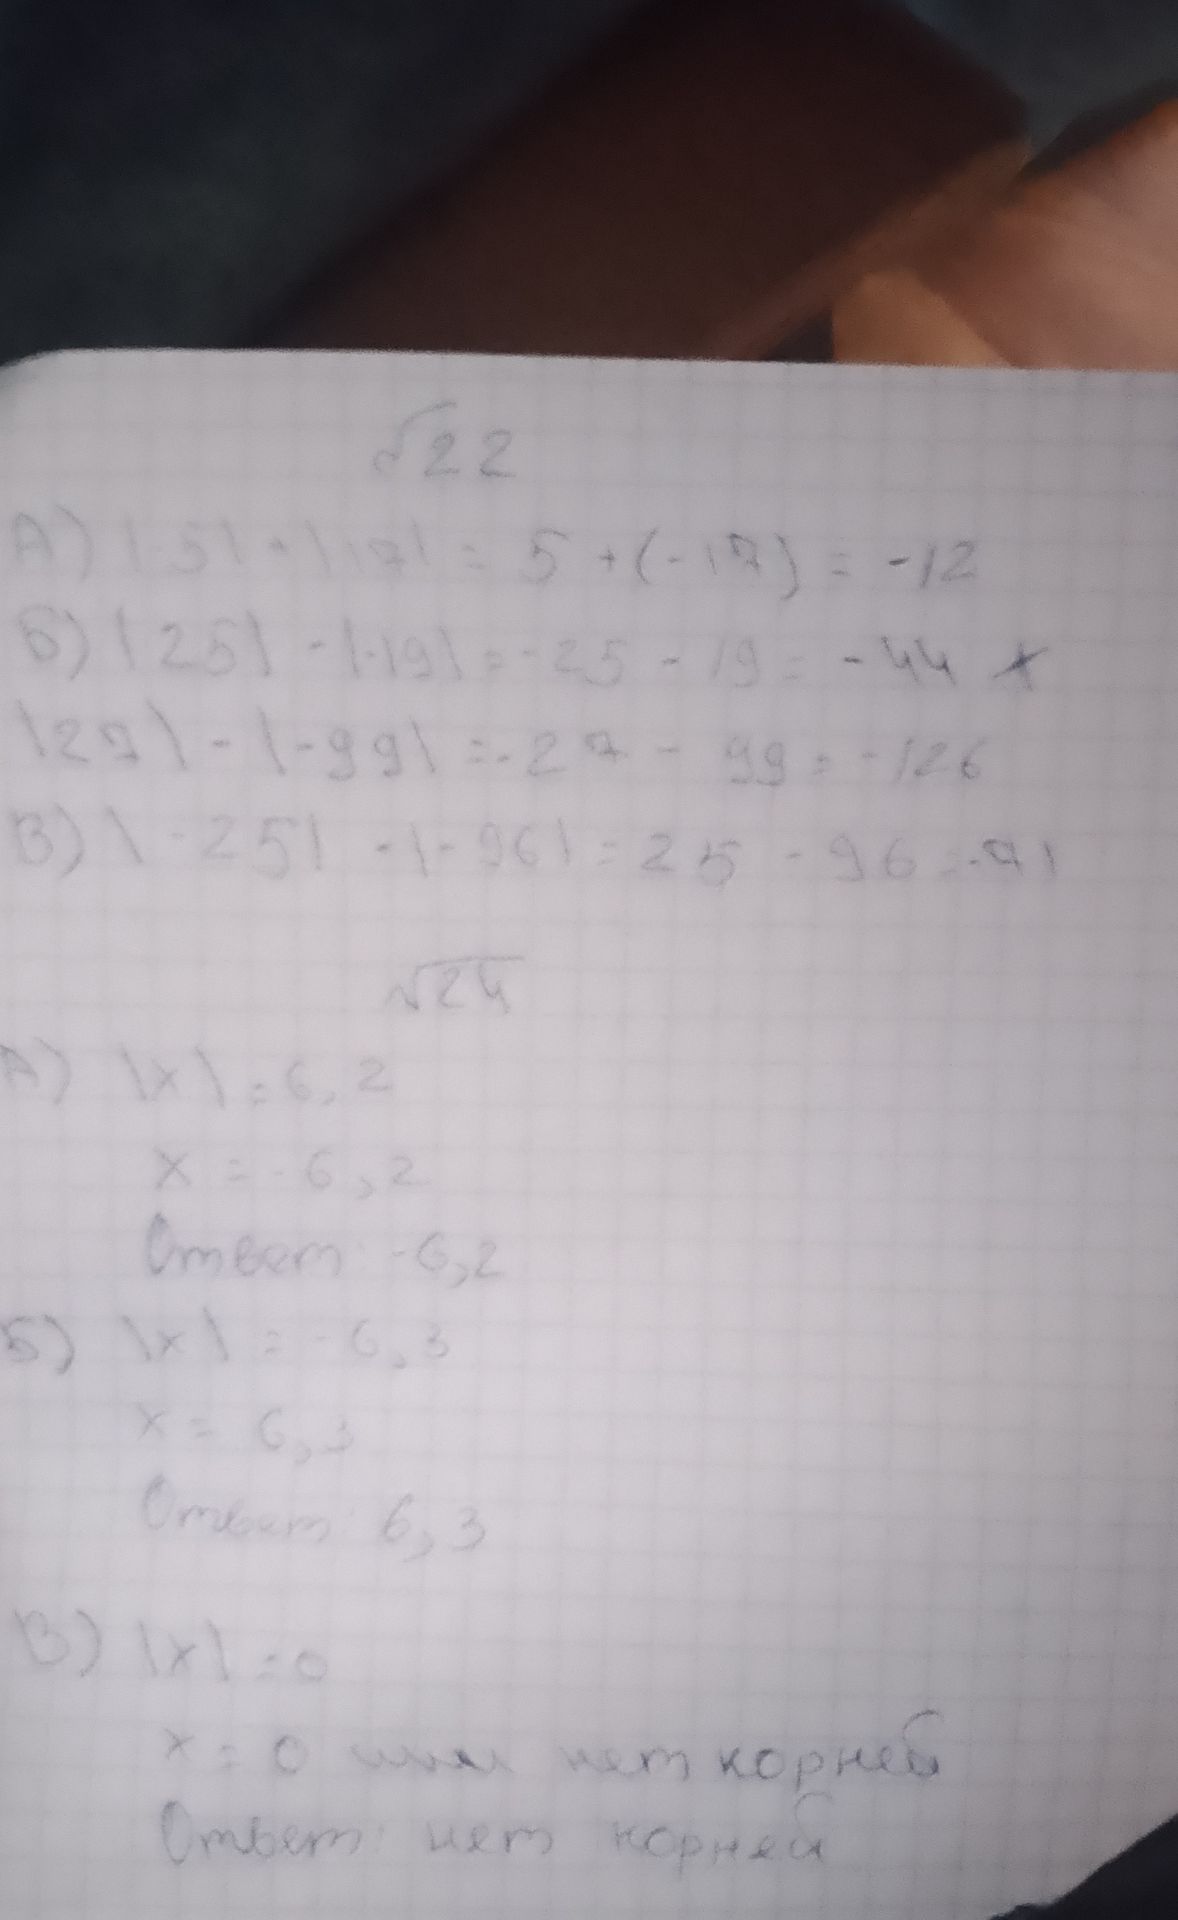 √22
А) |-5| + |17| = 5 + (-17) = -12
Б) |25| - |-19| = -25 - 19 = -44 +
|27| - |-99| = -27 - 99 = -126
В) |-25| - |-96| = 25 - 96 = -71
√24
А) |x| = 6,2
x = -6,2
Ответ: -6,2
Б) |x| = -6,3
x = 6,3
Ответ: 6,3
В) |x| = 0
x = 0 или нет корней
Ответ: нет корней